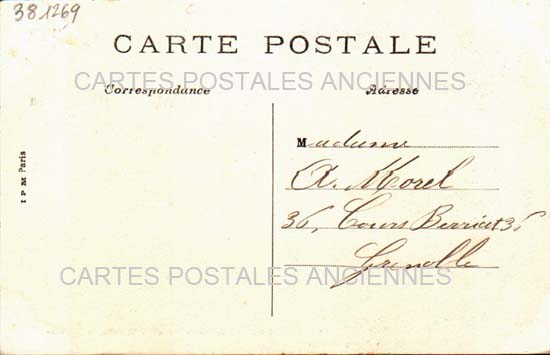 381269
CARTE POSTALE
CARTES POSTALES ANCIENNES
Correspondance
Adresse
Madame
A. Morel
36, Cours Berriat 36
Grenoble
CARTES POSTALES ANCIENNES
I P M Paris